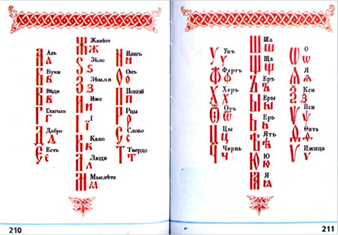 Азъ
Буки
Вѣди
Глаголь
Добро
Есть
Живѣте
Ѕѣло
Земля
Иже
І
Како
Люди
Мыслѣте
Нашъ
Онъ
Покой
Рцы
Слово
Твердо
210
Укъ
Фертъ
Херъ
Отъ
Цы
Червь
Ша
Ща
Еръ
Еры
Ерь
Ять
Ю
Я
О
Я
Кси
Пси
Ѳита
Ижица
211